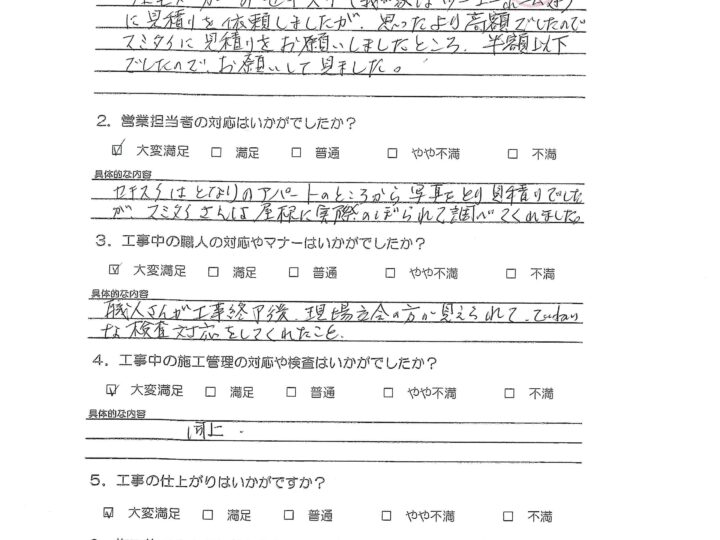 に見積りを依頼しましたが、思ったより高額でしたので
スミタイに見積りをお願いしましたところ、半額以下
でしたので、お願いして見ました。
2. 営業担当者の対応はいかがでしたか？
☑ 大変満足 □ 満足 □ 普通 □ やや不満 □ 不満
具体的な内容
セキスイはとなりのアパートのところから写真をとり見積りでした
が、スミタイさんは屋根に実際のぼられて調べてくれました。
3. 工事中の職人の対応やマナーはいかがでしたか？
☑ 大変満足 □ 満足 □ 普通 □ やや不満 □ 不満
具体的な内容
職人さんが工事終了後、現場立会の方が見えられて、ていねい
な検査対応をしてくれたこと、
4. 工事中の施工管理の対応や検査はいかがでしたか？
☑ 大変満足 □ 満足 □ 普通 □ やや不満 □ 不満
具体的な内容
同上.
5. 工事の仕上がりはいかがですか？
☑ 大変満足 □ 満足 □ 普通 □ やや不満 □ 不満